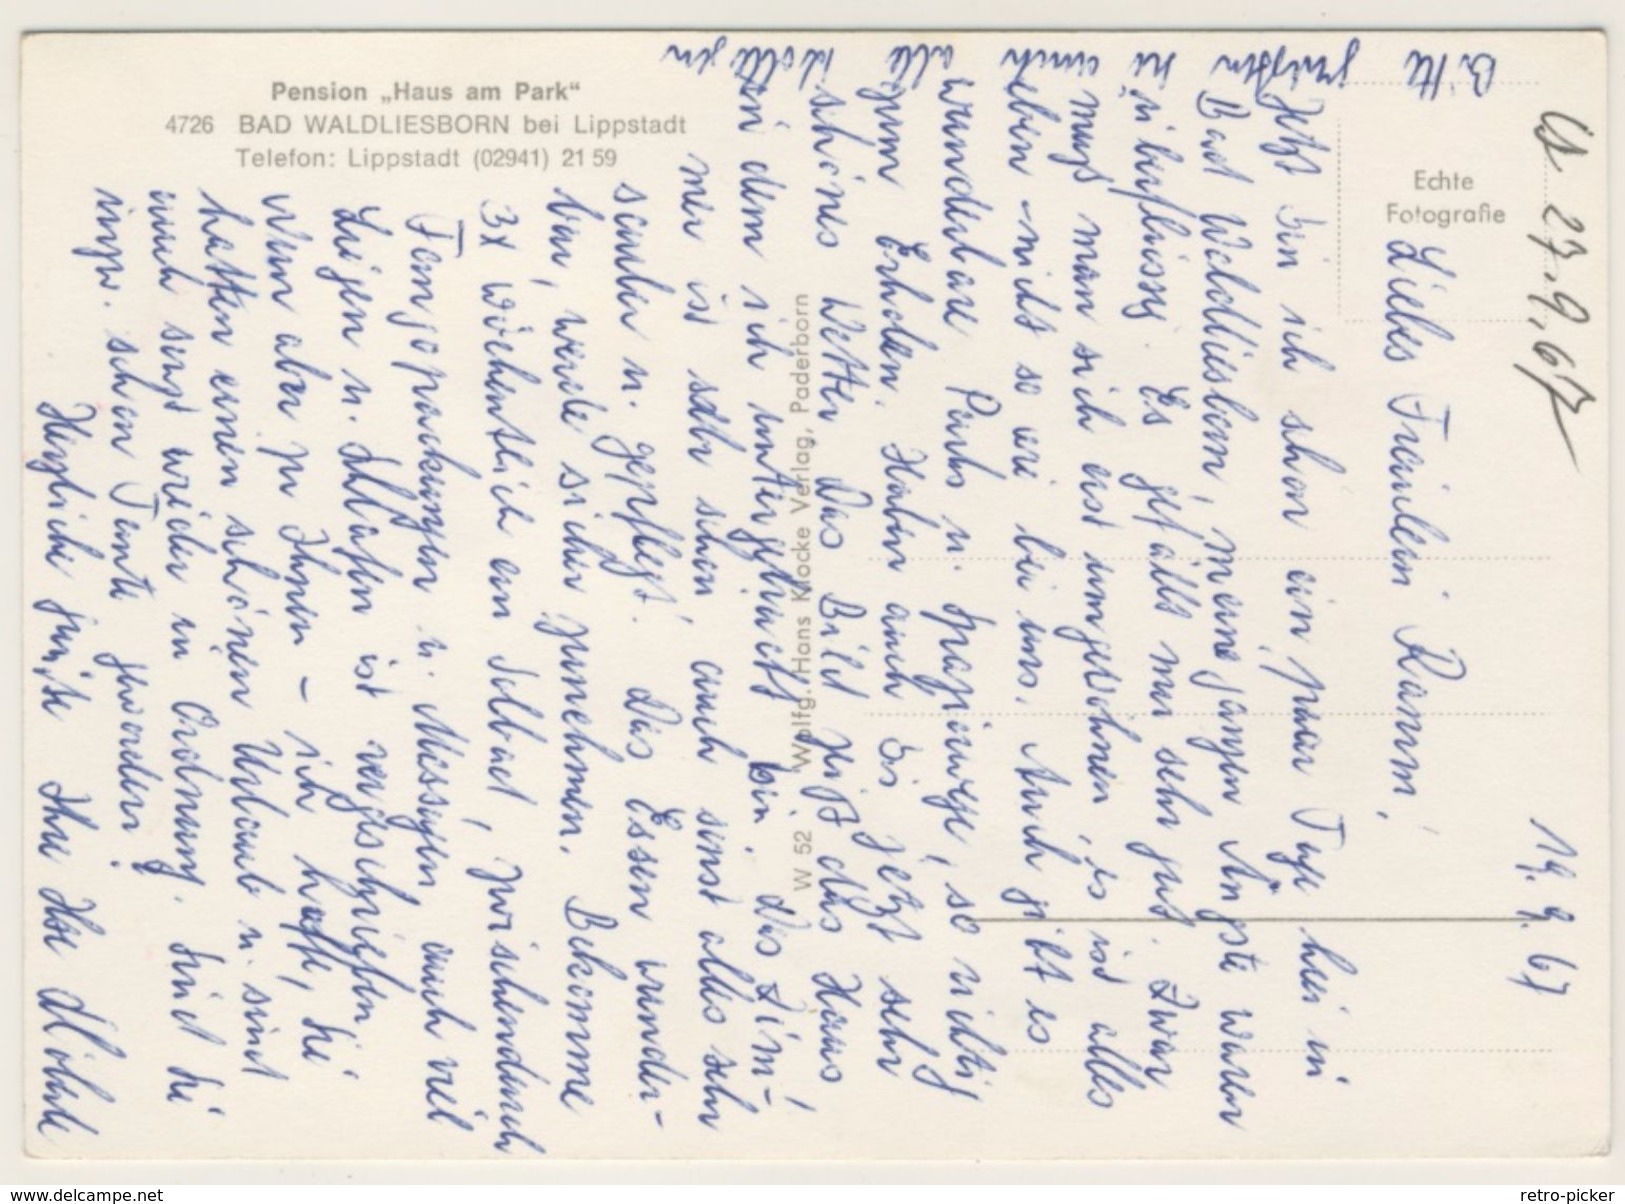 Pension „Haus am Park“
4726 BAD WALDLIESBORN bei Lippstadt
Telefon: Lippstadt (02941) 21 59
Echte
Fotografie
W 52 Wolfg. Hans Klocke Verlag, Paderborn
23.9.67
19. 9. 67
Liebes Fräulein Ramm,
Jetzt bin ich schon ein paar Tage hier in
Bad Waldliesborn, meine ganzen Ängste waren
überflüssig. Es gefällt mir sehr gut. Zwar
muß man sich erst umgewöhnen, es ist alles
eben nicht so wie bei uns. Auch gibt es
wunderbare Parks u. Spazierwege, so richtig
zum Erholen. Haben auch bis jetzt sehr
schönes Wetter. Das Bild zeigt das Haus
in dem ich untergebracht bin. Das Zim-
mer ist sehr schön, auch sonst alles sehr
sauber u. gepflegt. Das Essen wunder-
bar, werde sicher zunehmen. Bekomme
3x wöchentlich ein Solbad, zwischendurch
Fangopackungen u. Massagen, auch viel
Liegen u. Schlafen ist vorgeschrieben.
Nun aber zu Ihnen - ich hoffe, Sie
hatten einen schönen Urlaub u. sind
auch sonst wieder in Ordnung. Sind Sie
inzw. schon Tante geworden?
Herzliche Grüße Ihre
Bitte grüßen Sie auch alle Kollegen
www.delcampe.net
retro-picker